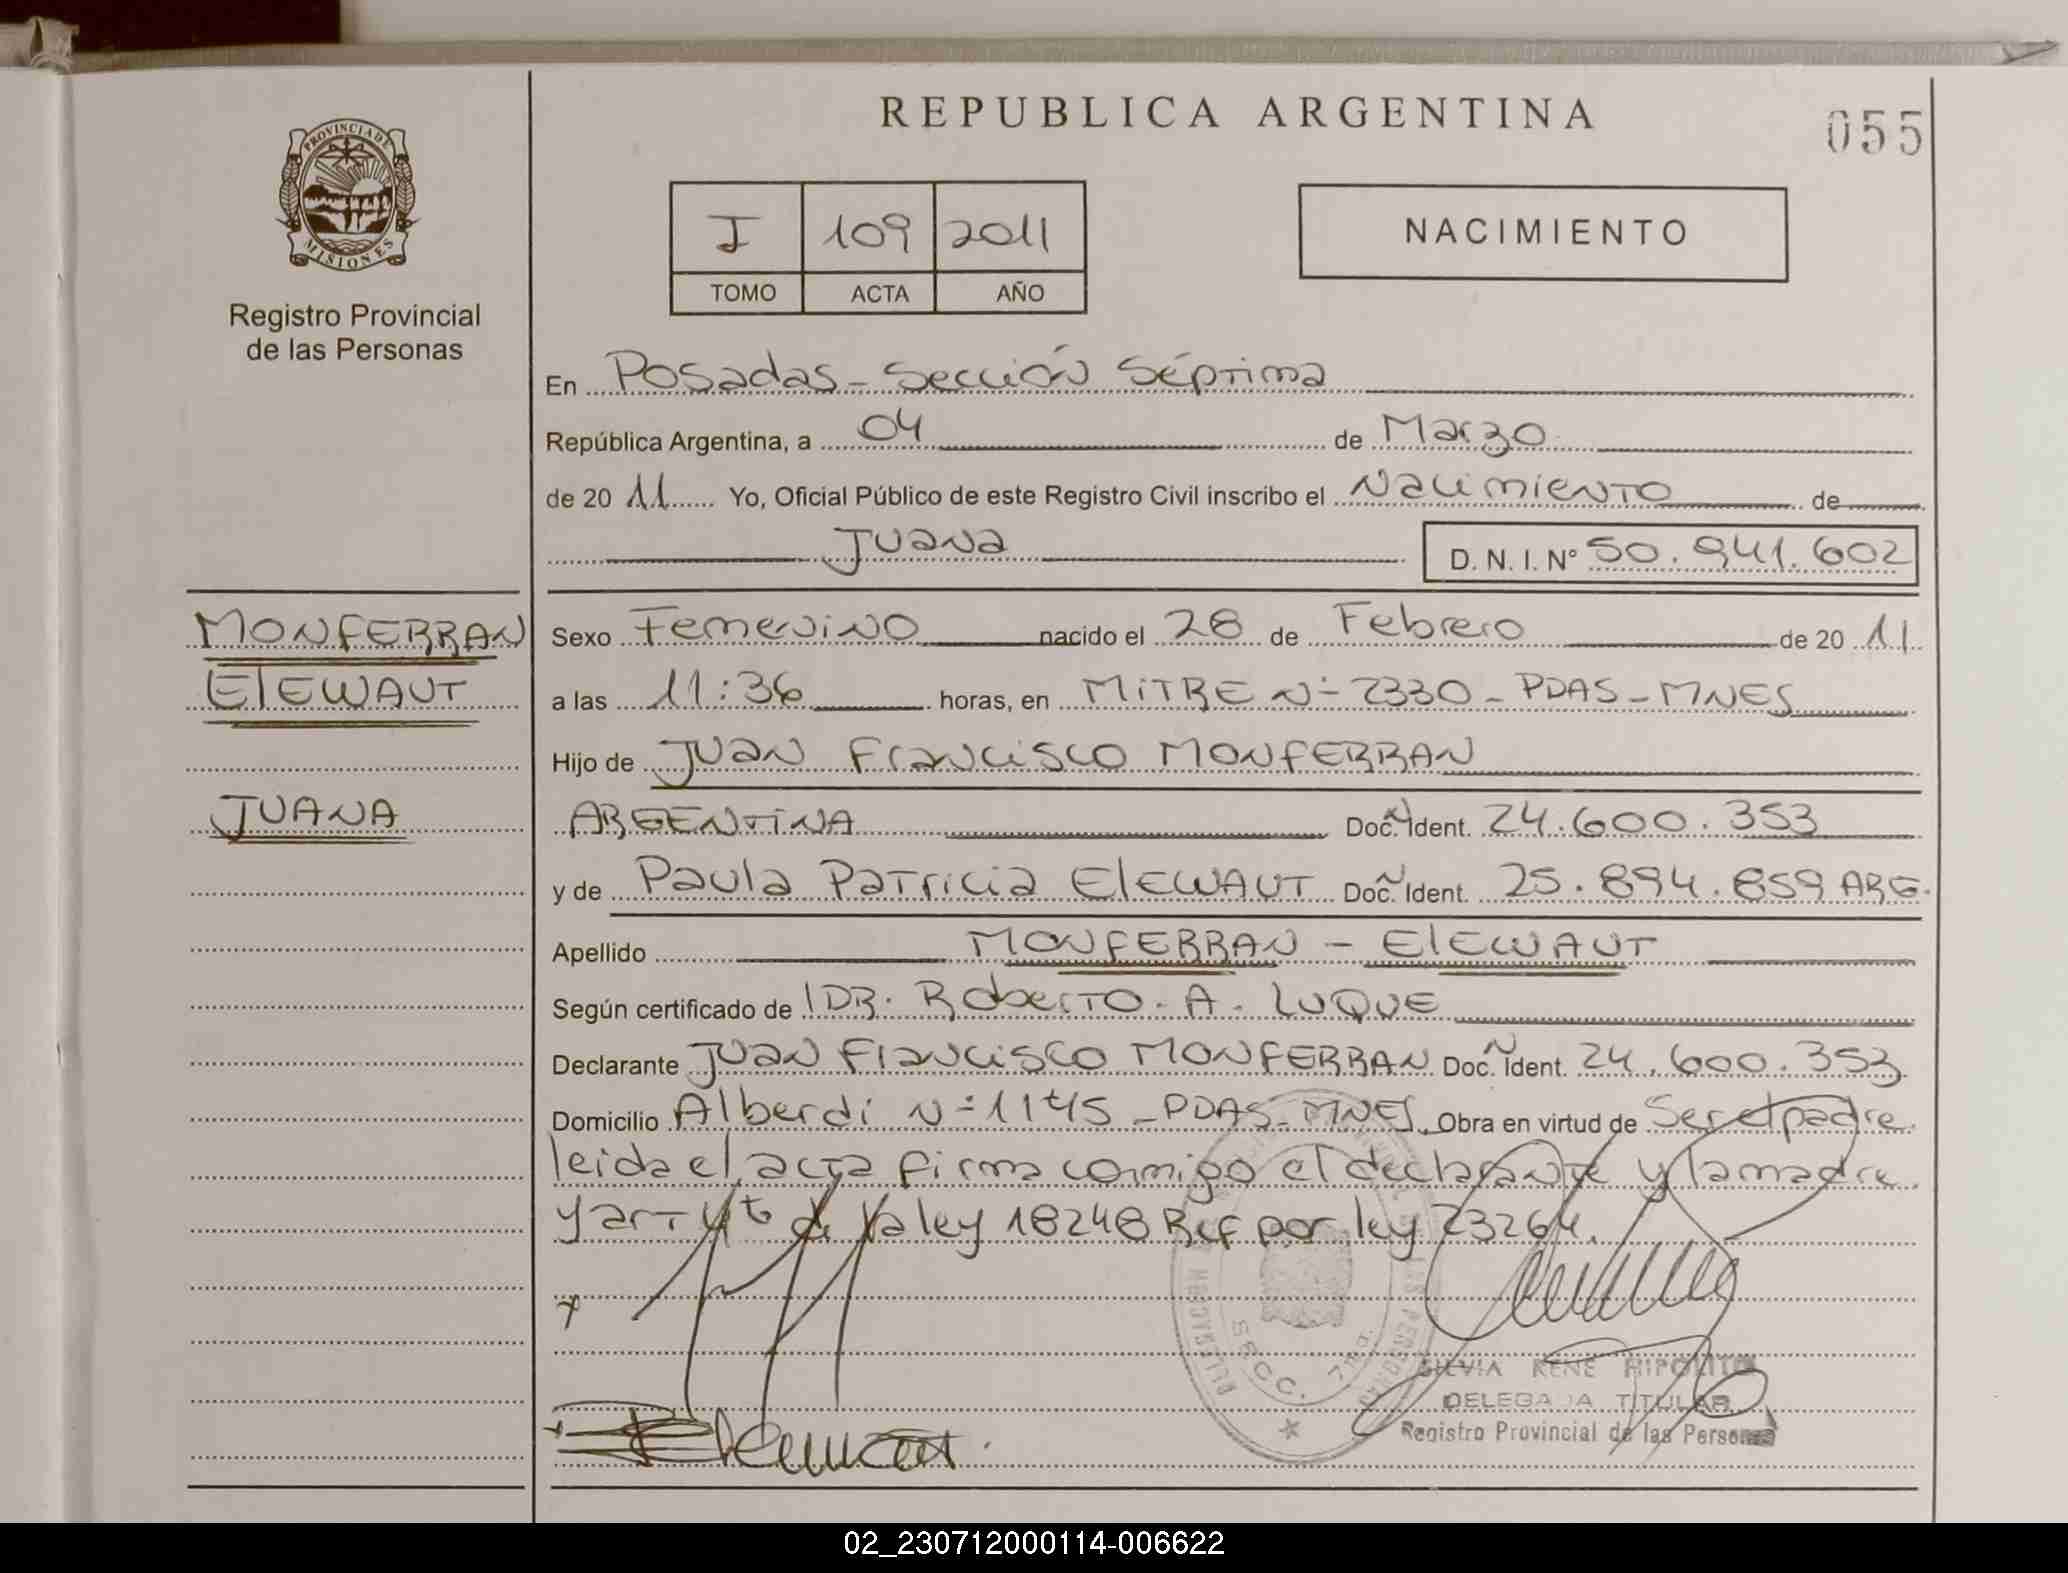 REPUBLICA ARGENTINA
055
PROVINCIA DE MISIONES
Registro Provincial
de las Personas
I 109 2011
TOMO ACTA AÑO
NACIMIENTO
En Posadas - Sección Séptima
República Argentina, a 04 de Marzo
de 20 11 Yo, Oficial Público de este Registro Civil inscribo el Nacimiento de
Juana D. N. I. N° 50.941.602
MONFERRAN
ElEWAUT
JUANA
Sexo Femenino nacido el 28 de Febrero de 20 11
a las 11:36 horas, en MITRE N° 2330 - PDAS - MNES
Hijo de Juan Francisco MONFERRAN
ARGENTINA Doc. Ident. 24.600.353
y de Paula Patricia ElEWAUT Doc. Ident. 25.894.859 ARG.
Apellido MONFERRAN - ElEWAUT
Según certificado de DR. Roberto A. LUQUE
Declarante Juan Francisco MONFERRAN Doc. Ident. 24.600.353
Domicilio Alberdi N° - PDAS - MNES Obra en virtud de Ser el padre
leida el acta firma conmigo el declarante y la madre
y art 4to de la ley 18248 Ref por ley 23264.
SECC. 7ma.
SILVIA RENE HIPOLITO
DELEGADA TITULAR
Registro Provincial de las Personas
02_230712000114-006622